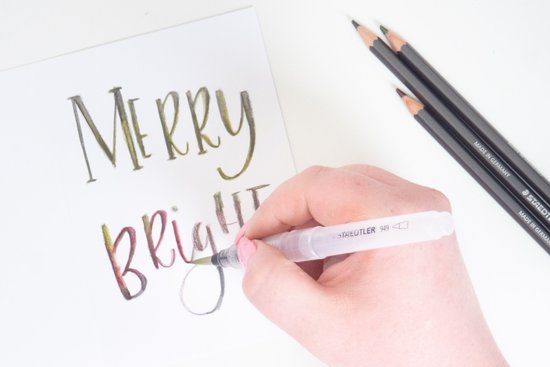 MERRY
BRigHT
STAEDTLER 949
MADE IN GERMANY
MADE IN GERMANY
STAEDTLER